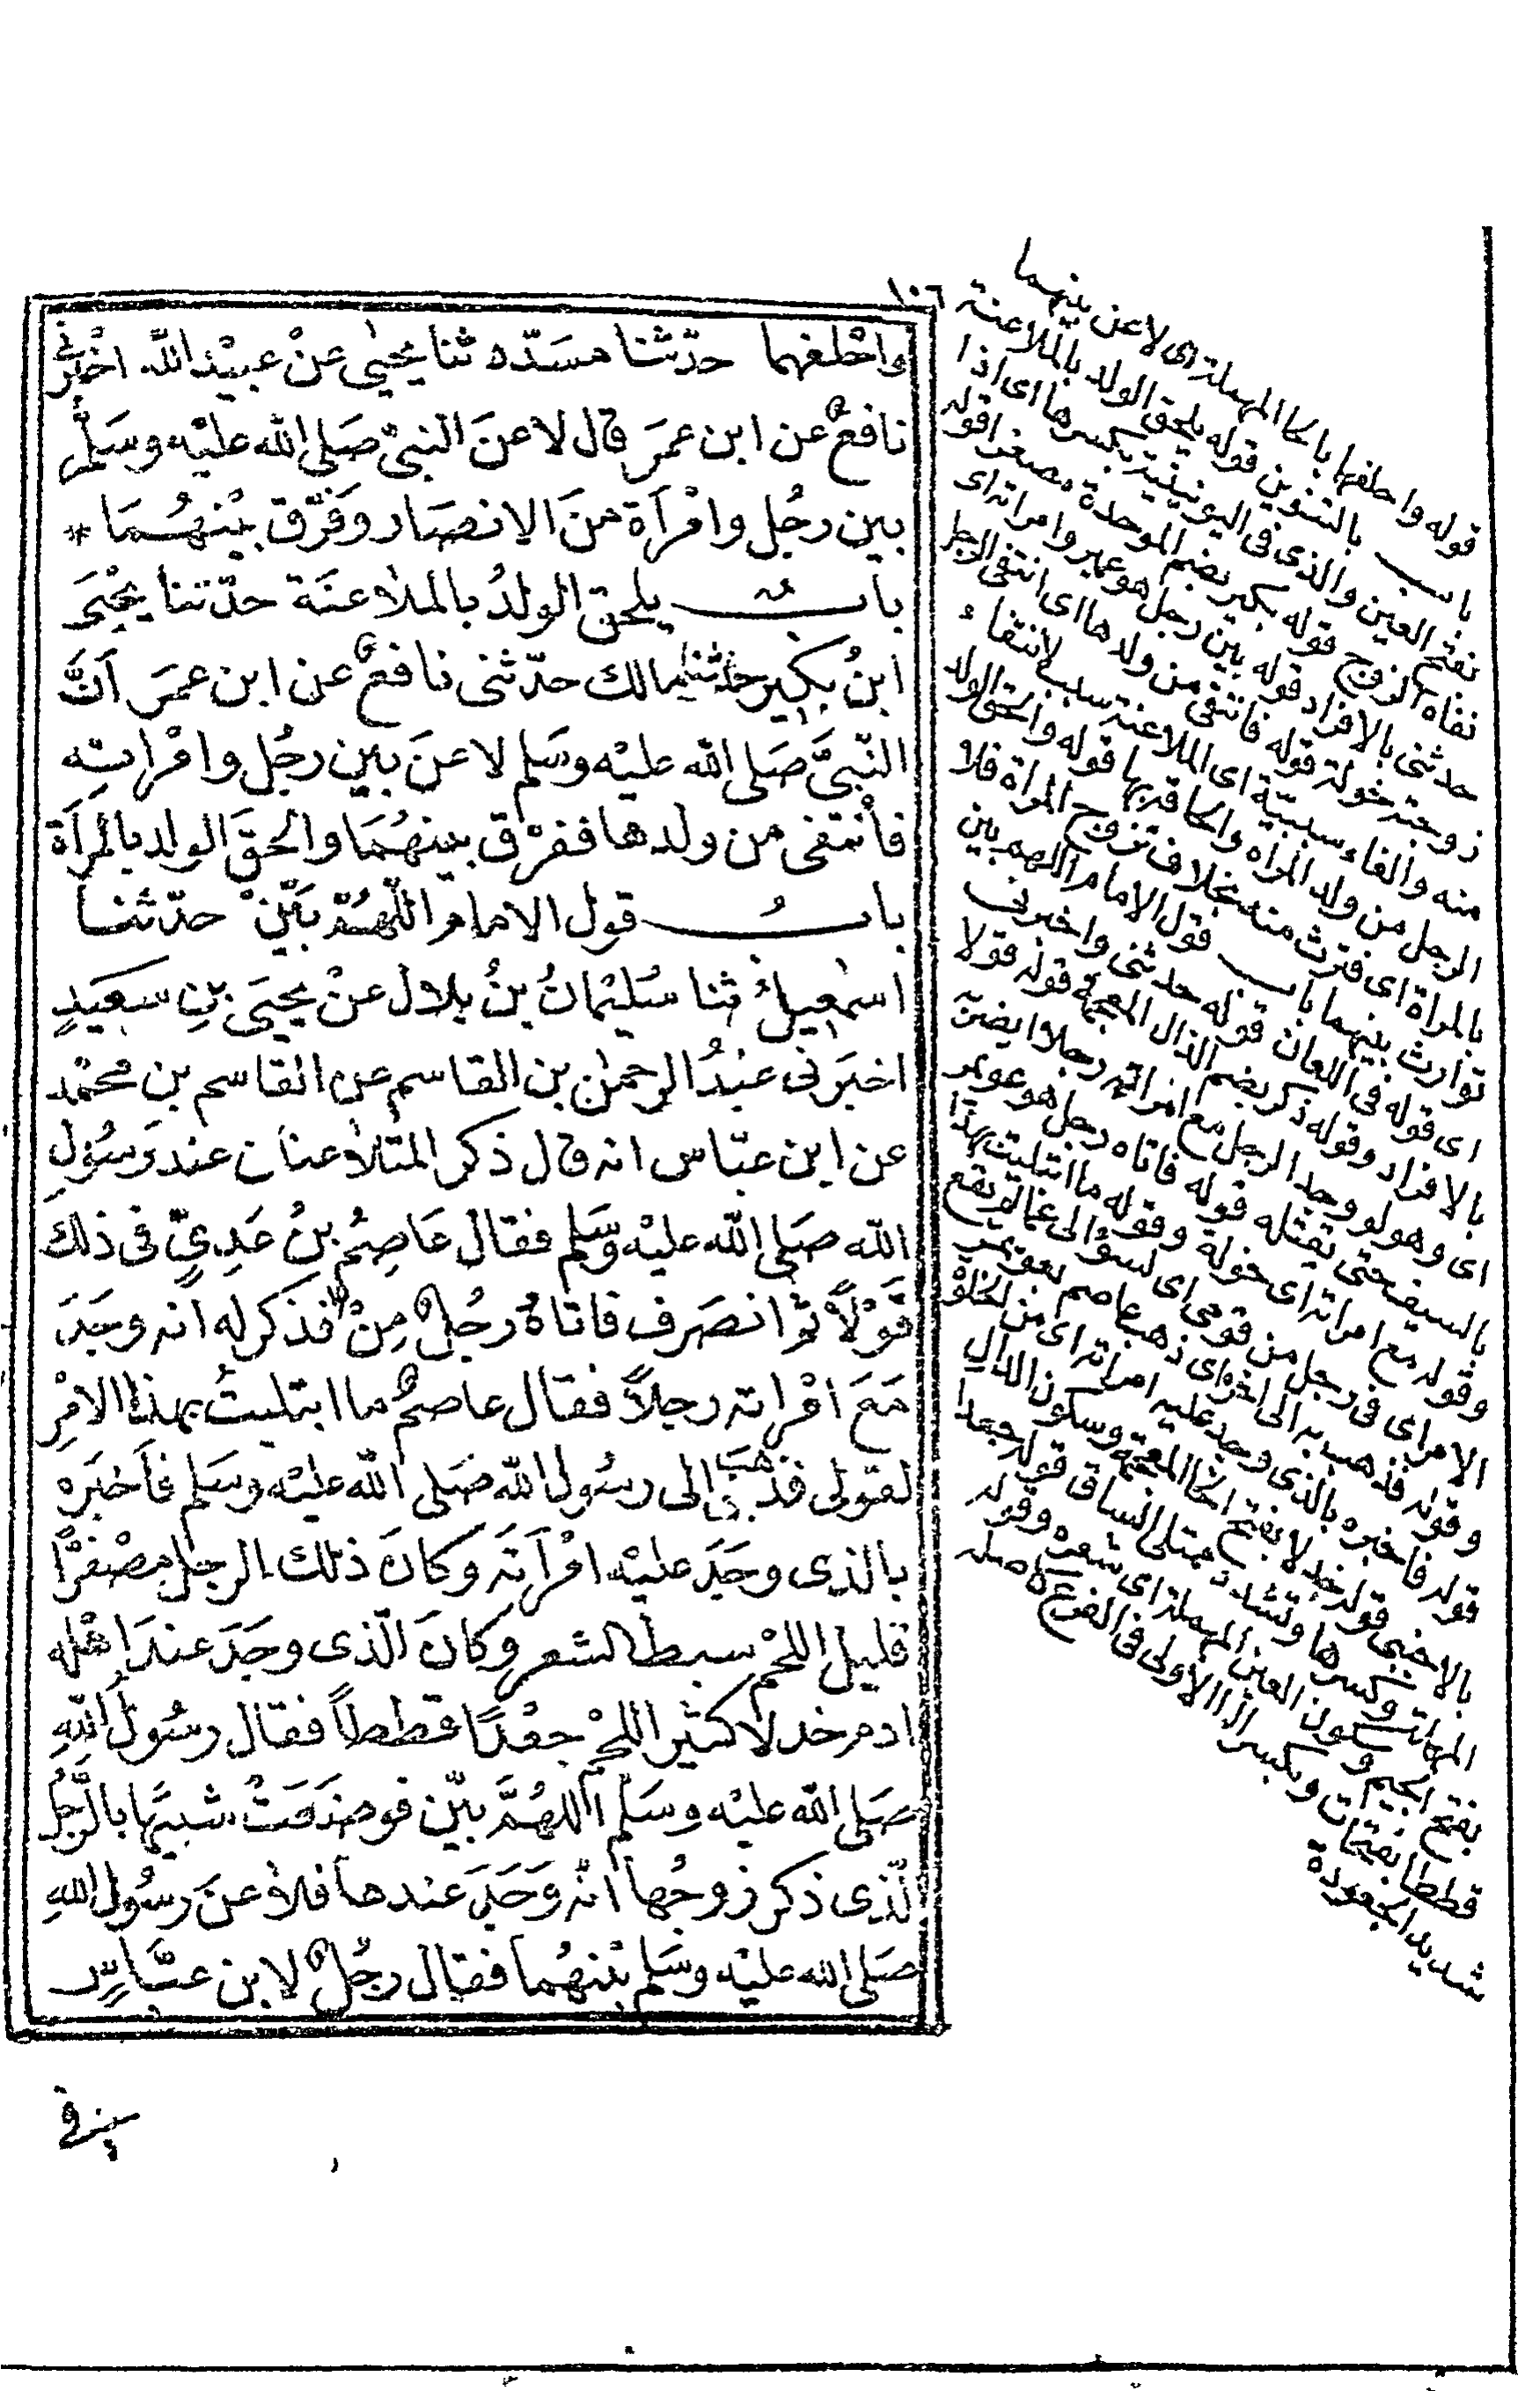 ١٠٦
واحلفهما حدّثنا مسَدّد ثنا يحيىٰ عنْ عبيْد اللّه اخبرَنى
نافعٌ عن ابن عمرَ قال لاعنَ النبىْ صَلى الله عليْه وسَلّم
بين رجُل وامْرأة منَ الانصَار وَفَرّق بيْنهُمَا *
بابٌ يلحق الولدُ بالملاعنَة حدّثنا يحْيَى
ابنُ بكير حدّثنا مالك حدّثنى نافعٌ عن ابن عمرَ أنَّ
النّبىَّ صَلى الله عليْه وسَلم لاعنَ بين رجُل وامْراتِه
فانْتفى من ولدها ففرّق بينهُمَا والحقَ الولد بالمرأة
بابُ قول الامام اللّهُمّ بَيّنْ حدّثنا
اسمٰعيلُ ثنا سُليْمانُ بنُ بلال عنْ يحيَى بنِ سعيَدٍ
اخبَرنى عبْدُ الرحمٰن بن القاسم عن القاسم بن محمّد
عن ابن عبّاس انه قال ذكر المتلاعنان عند رَسُولِ
الله صَلى الله عليْه وسَلم فقال عَاصِمُ بنُ عَدِىٍّ فى ذلك
قَوْلاً ثمّ انصَرف فاتاهُ رجُلٌ مِنْ فذكر له انه وجَدَ
مَعَ امْراته رجلاً فقال عاصمٌ ما ابتليتُ بهذا الامْرِ
لقولى فذهَبَ الى رسُول الله صَلى الله عليْه وسَلم فأخبَره
بالذى وجَدَ عليْه امْرأته وكانَ ذلك الرجل مصْفرًّا
قليل اللحْم سبط الشعر وكانَ الّذى وجَدَ عندَ اهْله
ادم خدلا كثير اللحْم جعْدًا قططاً فقال رسُولُ اللهِ
صَلى الله عليْه وسَلم اللهُمَّ بيّن فوضَعَتْ شبيهًا بالرَّجُل
الّذى ذكر زوجُها انّه وَجَدَ عندها فلاعنَ رسُول اللهِ
صَلى الله عليْه وسَلم بيْنهُما فقال رجُلٌ لابن عبَّاسٍ
قوله واحلفهما بالحا المهملة اى لاعن بينهما
باب بالتنوين قوله يلحق الولد بالملاعنة
بفتح العين والذى فى اليونينية بكسرها اى اذا
نفاه الزوج قوله بكير بضم الموحدة مصغرا قوله
حدثنى بالافراد قوله بين رجل هو عويمر وامراته اى
زوجته خولة قوله فانتفى من ولدها اى انتفى الرجل
منه والفاء سببيّة اى الملاعنة سبب لانتفاء
الرجل من ولد المراه والحاقه بها قوله والحق الولد
بالمراة اى فترث منه بخلاف تزوج المراة فلا
توارث بينهما باب قول الامام اللهم بين
اى قوله فى اللعان قوله حدثنى واخبرنى
بالافراد وقوله ذكر بضم الذال المعجمة قوله قولا
اى وهو لو وجد الرجل مع امراته رجلا ايضربه
بالسيف حتى يقتله قوله فاتاه رجل هو عويمر
وقوله مع امراته اى خولة وقوله ما ابتليت بهذا
الامر اى فى رجل من قومى اى لسؤالى عما لم يقع
وقوله فذهب به الى اخره اى ذهب عاصم بعويمر
قوله فاخبره بالذى وجد عليه امراته اى من الخلوة
بالاجنبى قوله خدلا بفتح الخا المعجمة وسكون الدال
المهملة وكسرها وتشدد ممتلى الساق قوله جعدا
بفتح الجيم وسكون العين المهملة اى شعره وقوله
قططا بفتحات وبكسر الطا الاولى فى الفرع كاصله
شديد الجعودة